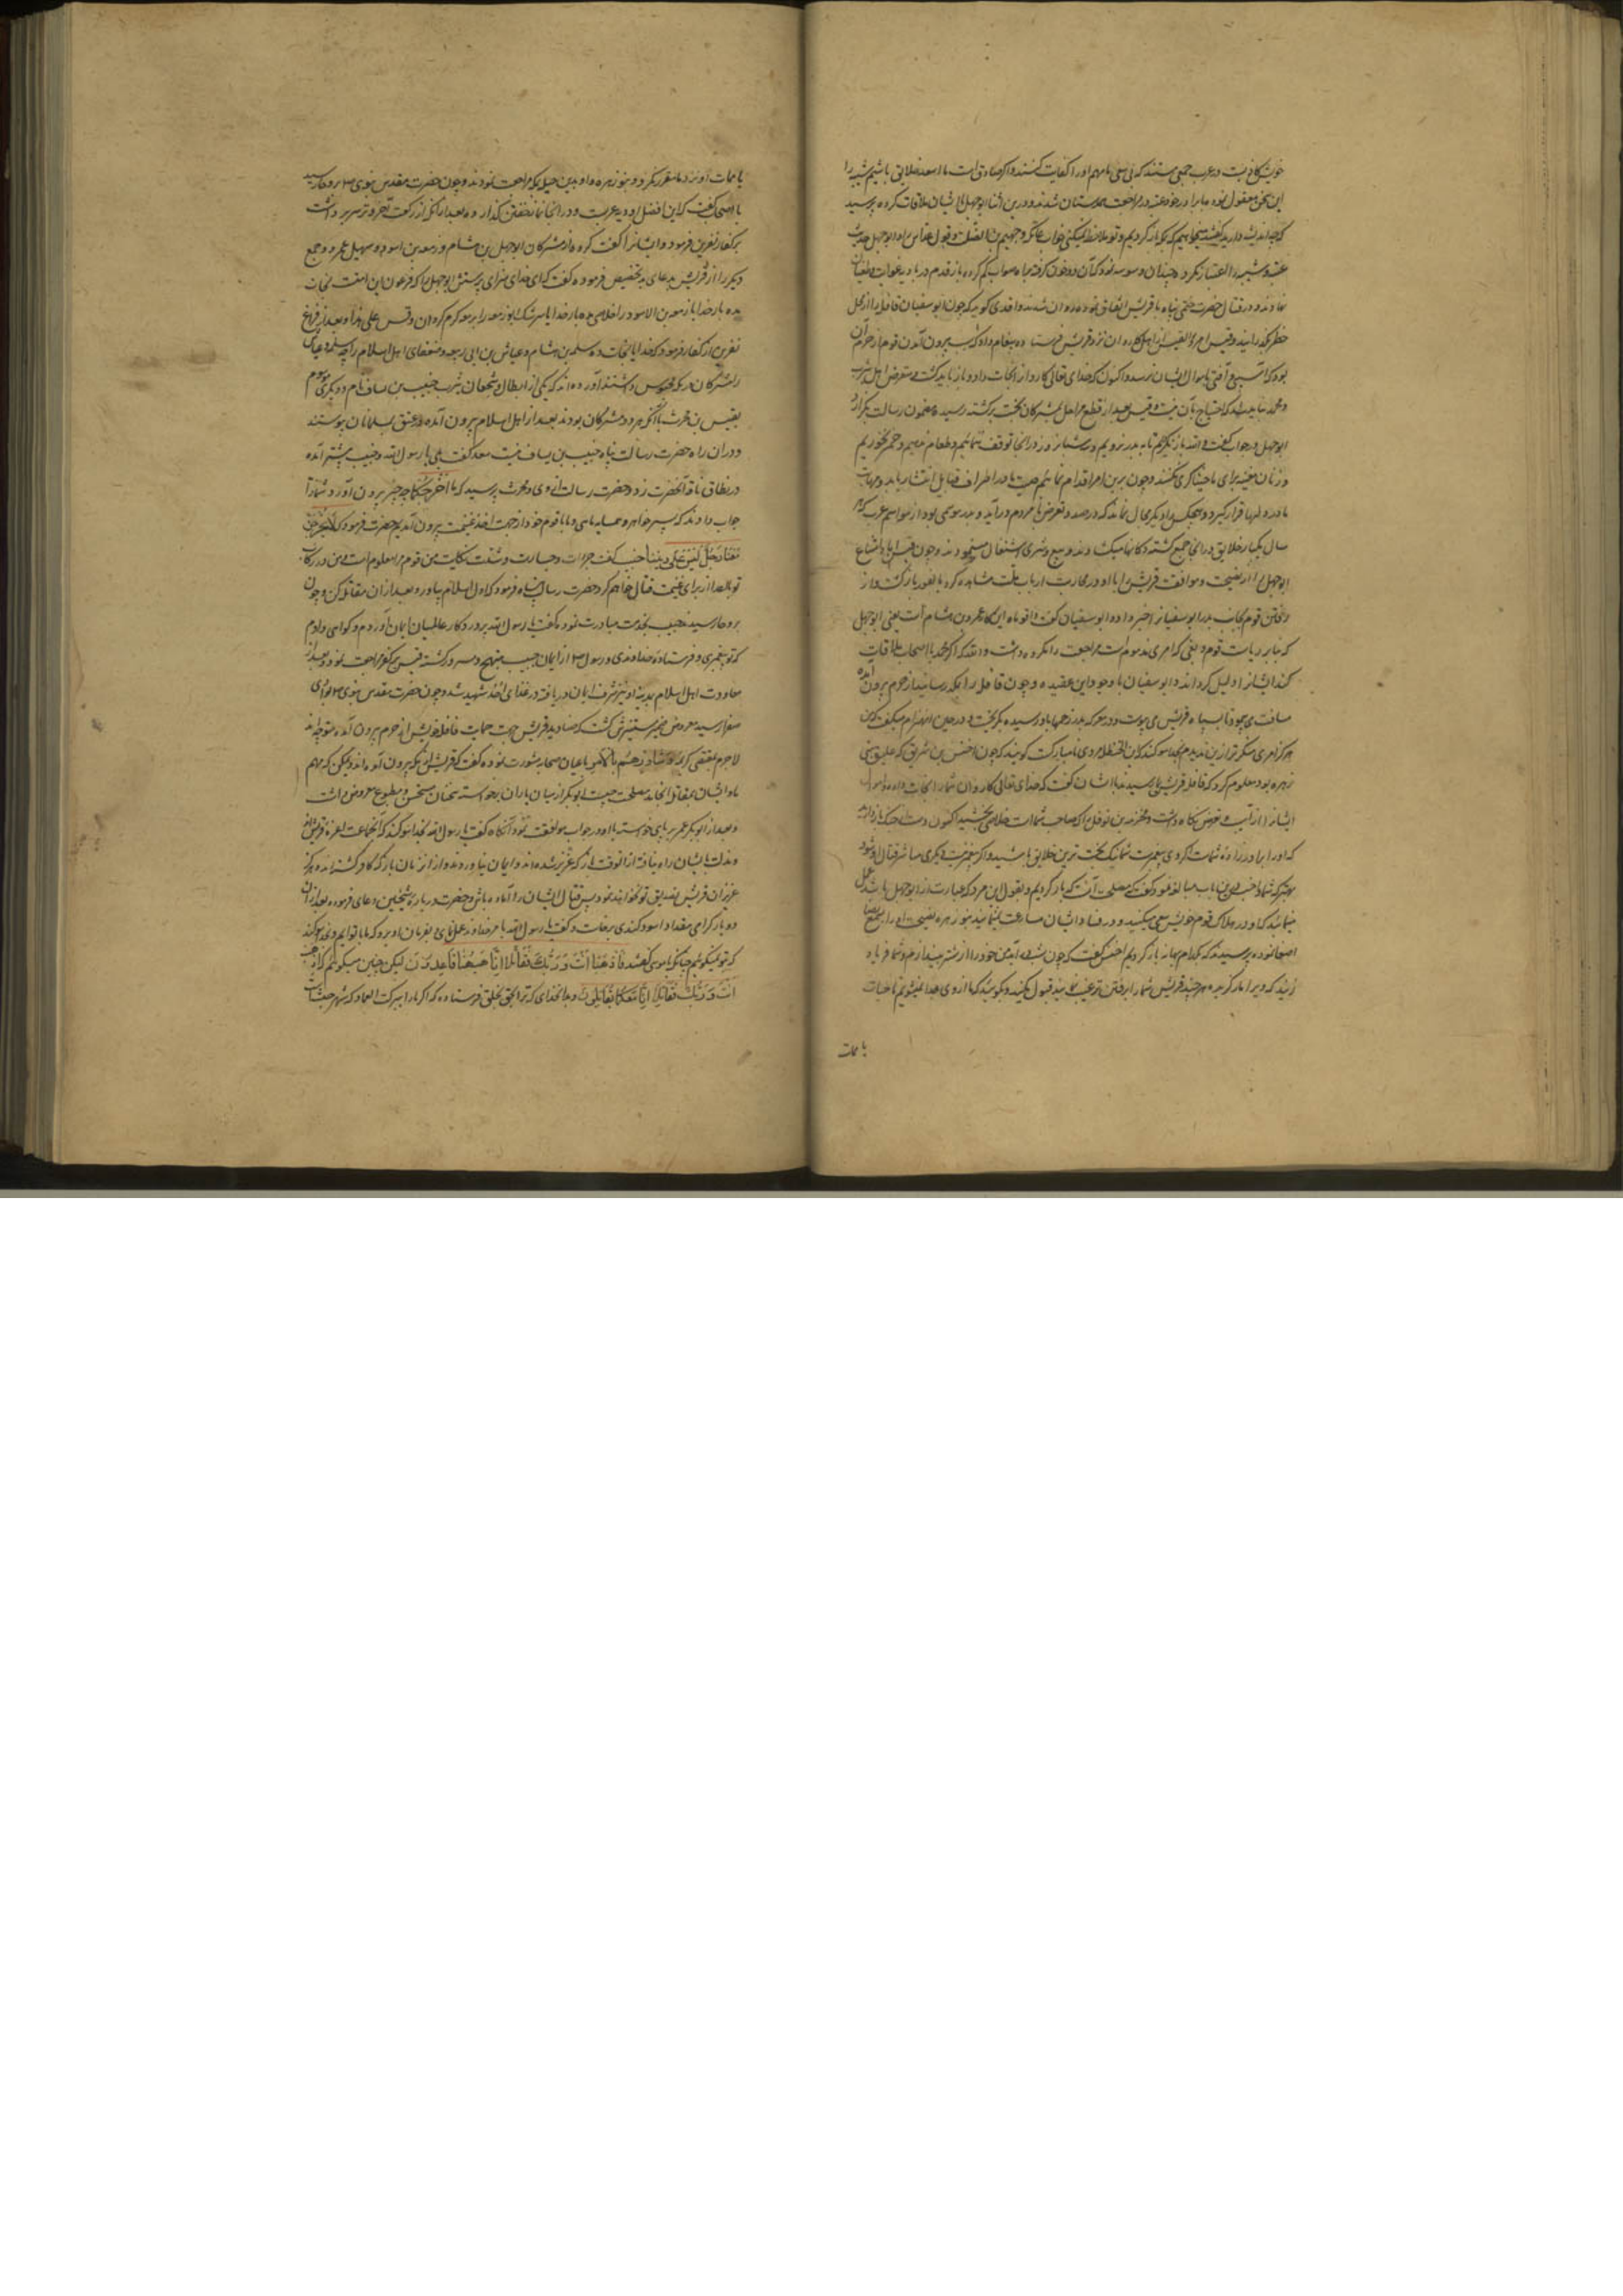 خویش کافی نیست در عرب جمعی هستند که بی سعی ما مهم او را کفایت کنند و اگر صادق است ما اسعد خلایق باشیم شیبه را
این سخن معقول نموده با برادر خود عتبه در مراجعت همداستان شدند و درین اثنا ابوجهل با ایشان ملاقات کرده پرسید
که چه اندیشه دارید گفتند میخواهیم که باز گردیم و تو ملاحظه نمیکنی خواب عاتکه و جهیم بن الصلت و قول عداس را و ابوجهل
نمادند و در قتال حضرت ختمی پناه با قریش اتفاق نموده روان شدند واقدی گوید که چون ابوسفیان قافله را از محل
خطر بگذرانید و قیس بن امرؤ القیس را از اهل کاروان نزد قریش فرستاده پیغام داد که سبب بیرون آمدن قوم از حرم آن
بود که آسیبی و آفتی باموال ایشان نرسد و اکنون که خدای تعالی کاروان را نجات داد و باز باید گشت و متعرض اهل یثرب
و محمد نباید شد که احتیاج بآن نیست و قیس بعد از قطع مراحل بمشرکان پیوسته رسیده مضمون رسالت بگزارد
ابوجهل در جواب گفت والله باز نگردیم تا به بدر نرویم و سه شبانروز در آنجا توقف ننمائیم و طعام ندهیم و خمر نخوریم
و زنان مغنیه برای ما خنیاگری نکنند و چون برین امر اقدام نمائیم صیت ما در اطراف قبایل انتشار یابد و مهابت
ما در دلها قرار گیرد و هیچکس را دیگر مجال نماند که در صدد تعرض ما مردم درآید و بدر موسمی بود از مواسم عرب که هر
سال یکبار خلایق در آنجا جمع گشته دکانها میکشادند و به بیع و شری اشتغال مینمودند و چون قیس ابا و امتناع
ابوجهل را از نصیحت و موافقت قریش را با او در محاربت ارباب ملت مشاهده کرد بالفور باز گشت و از
رفتن قوم بجانب بدر ابوسفیان را خبر داد و ابوسفیان گفت واقوماه این کار عمرو بن هشام است یعنی ابوجهل
که بنابر ریاست قوم و بغی که امری مذموم است مراجعت را مکروه داشت و الله که اگر محمد با اصحاب ما ملاقات
کند ایشان را ذلیل گرداند و ابوسفیان با وجود این عقیده چون قافله را بمکه رسانید از حرم بیرون آمده
مسافت می پیمود تا بسپاه قریش می پیوست و در معرکه بدر زخمها باو رسیده بگریخت و در حین انهزام میگفت که من
هرگز امری منکر تر از بدر ندیدم بخدا سوگند که ابن الحنظله مردی نامبارکست گویند که چون اخنس بن شریق که حلیف بنی
زهره بود معلوم کرد که قافله قریش بمکه رسید بنا با ایشان گفت که خدای تعالی کاروان شما را نجات داده و اموال
ایشان را از آسیب و تعرض نگاه داشت و مخرمه بن نوفل را که صاحب شماست خلاصی بخشید اکنون دست از جنک باز دارید
که او را برادرزاده شماست اگر وی پیغمبرست شما نیک بخت ترین خلایق باشید و اگر پیغمبر نیست دیگری مباشر قتال او شود
بهتر که شما و اخنس درین باب مبالغه نموده گفت مصلحت آنست که باز گردیم و بقول این مرد که عبارت از ابوجهل باشد عمل
ننمائید که او در هلاک قوم خویش سعی میکند و در فساد ایشان مسارعت مینماید بنو زهره نصیحت او را بسمع رضا
اصغا نموده پرسیدند که بکدام بهانه باز گردیم اخنس گفت که چون شب درآید من خود را از شتر بیندازم و شما فریاد
زنید که ویرا مار گزیده هر چند قریش شما را برفتن ترغیب نمایند قبول مکنید و گویید که ما از وی جدا نمیشویم تا حیات
یا ممات
یا ممات او نزد ما مقرر نگردد و بنو زهره با او بدین حیله بمکه مراجعت نمودند و چون حضرت مقدس نبوی ص بروحا رسید
با اصحاب گفت که این افضل اودیه عربست و در آنجا نماز خفتن گذارده بعد از آنکه از رکعت آخر وتر سر برداشت
بر کفار نفرین فرمود و ایشان را لعنت کرده از مشرکان ابوجهل بن هشام و زمعه بن اسود و سهیل عمرو و جمع
دیگر را از قریش بدعای بد تخصیص فرموده گفت که ای خدای سزای پرستش ابوجهل را که فرعون این امتست نجات
مده بار خدایا زمعه بن الاسود را خلاصی مده
نفرین از کفار فرمود که خدایا نجات ده سلمه بن هشام و عیاش بن ابی ربیعه و ضعفای اهل اسلام را چه سلمه و عیاش
را مشرکان در مکه محبوس داشتند آورده اند که یکی از ابطال و شجعان یثرب خبیب بن یساف نام و دیگری موسوم
بقیس بن محرث با آنکه هر دو مشرکان بودند بعد از اهل اسلام بیرون آمده در عقیق بمسلمانان پیوستند
و در آن راه حضرت رسالت پناه خبیب بن یساف نیست سعد گفت بلی یا رسول الله و خبیب پیشتر آمده
در نطاق ناقه آنحضرت زد و حضرت رسالت از وی و محرث پرسید که ما اخرجکما چه چیز بیرون آورد شما را
جواب دادند که پسر خواهر و همسایه مائی و ما با قوم خود از جهت اخذ غنیمت بیرون آمدیم حضرت فرمود که لا یخرجن
معنا رجل لیس علی دیننا خبیب گفت جرات و جسارت و شدت نکایت من قوم مرا معلوم است من در رکاب
تو با اعدا از برای غنیمت قتال خواهم کرد حضرت رسالت پناه فرمود که اول اسلام بیاور و بعد از آن مقاتله کن و چون
بروحا رسید خبیب بخدمت مبادرت نموده گفت یا رسول الله بپروردگار عالمیان ایمان آوردم و گواهی دادم
که تو پیغمبری و فرستاده خداوندی و رسول ص از ایمان خبیب مبتهج و مسرور گشته قیس بر کفر مراجعت نمود و بعد از
معاودت اهل اسلام بمدینه او نیز شرف ایمان دریافته در غزای احد شهید شد و چون حضرت مقدس نبوی ص بوادی
صفرا رسید معروض ضمیر مستنیرش گشت که صنادید قریش جهت حمایت قافله خویش از حرم بیرون آمده متوجه اند
لاجرم بمقتضی کریمه و شاورهم فی الامر با اعیان صحابه مشورت نموده گفت که قریش از مکه بیرون آمده اند و ممکن که مهم
ما و ایشان بمقاتله انجامد مصلحت چیست ابوبکر از میان یاران برخواسته سخنان مستحسن و مطبوع معروض داشت
و بعد از ابوبکر عمر بر پای خواسته با او در جواب موافقت نمود آنگاه گفت یا رسول الله بخدا سوگند که آنجماعت اعزه قریش اند
و مذلت بایشان راه نیافته از آنوقت باز که عزیز شده اند و ایمان نیاورده اند از آن زمان باز که کافر گشته اند و هرگز
عزیزان قریش تصدیق تو نخواهند نمود پس قتال ایشان را آماده باش و حضرت درباره شیخین دعای خیر فرموده بعد از آن
دو بار گرامی مقداد اسود کندی برخاست و گفت یا رسول الله بامر خداوند عمل نمای و بفرمان او برو که ما با توایم و بخدا سوگند
که تو نمیگوئیم چنانکه با موسی گفتند فاذهب انت و ربک فقاتلا انا ههنا قاعدون لیکن چنین میگوئیم که اذهب
انت و ربک فقاتلا انا معکما مقاتلون و بدان خدای که ترا بحق بخلق فرستاده که اگر ما را ببرک الغماد که شهر حبشه است